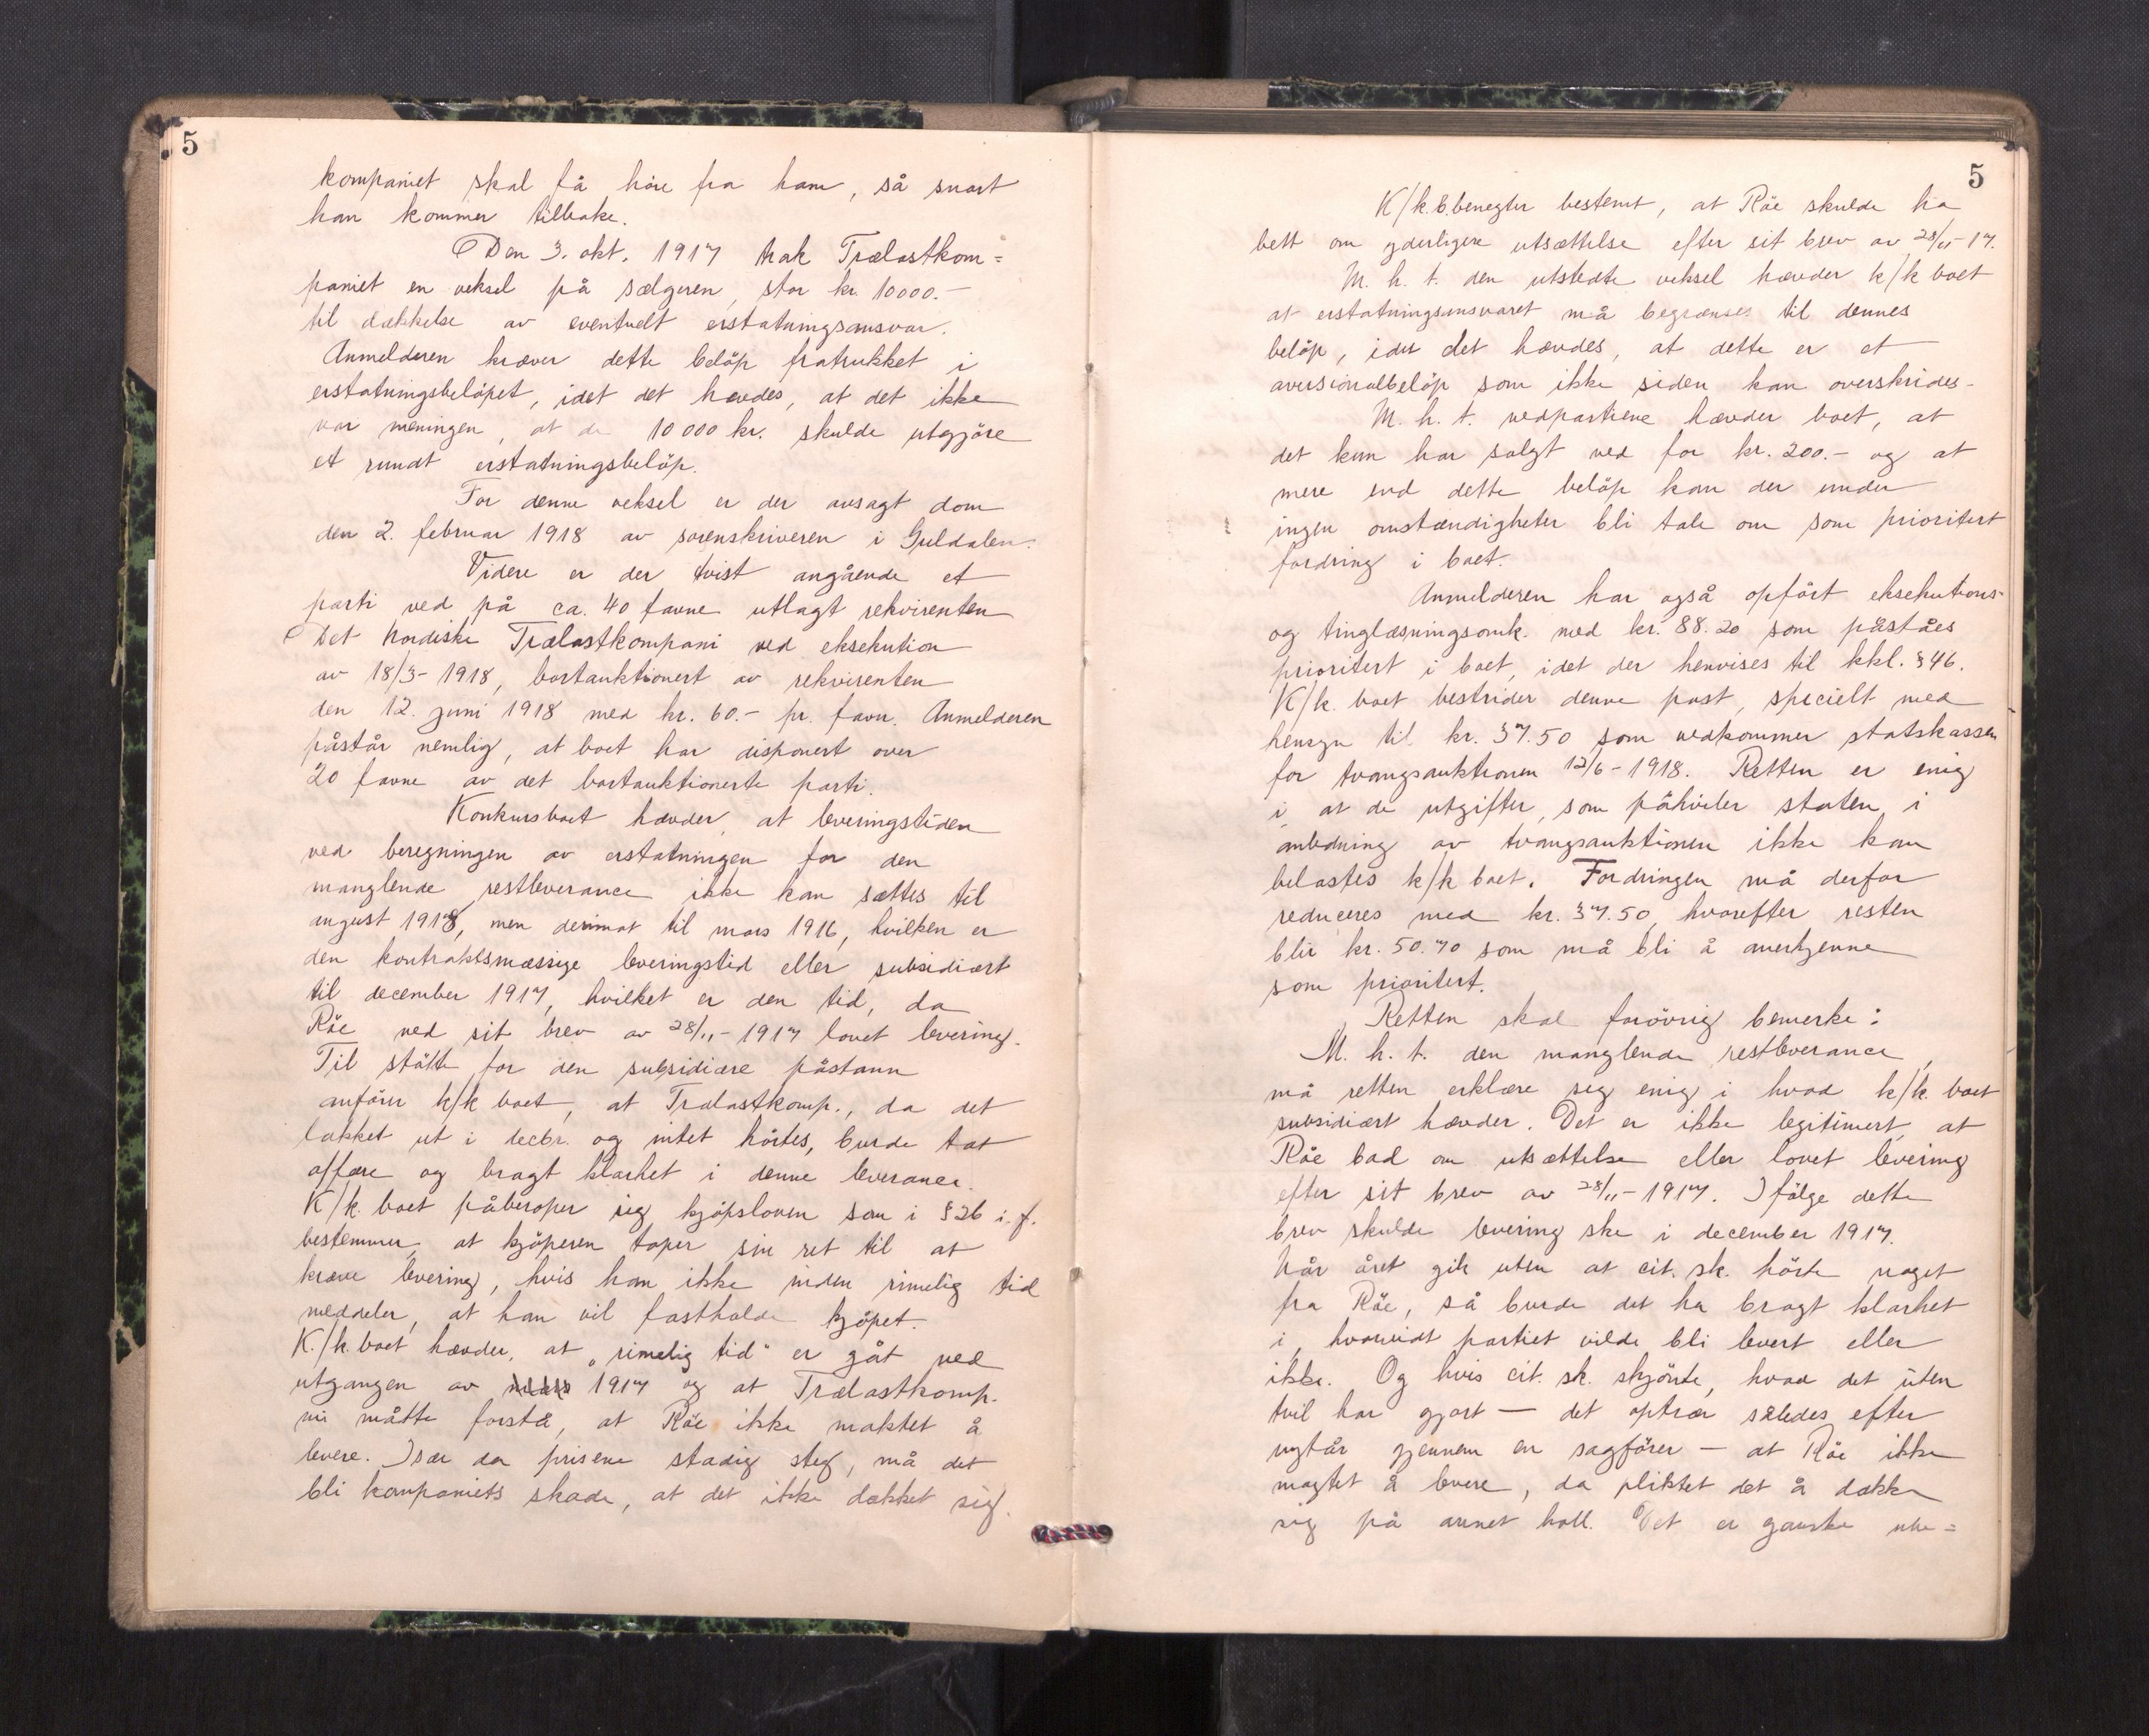 5
kompaniet skal få høre fra ham, så snart
han kommer tilbake.
Den 3. okt. 1917 trak Trælastkom=
paniet en veksel på sælgeren, stor kr. 10000.-
til dækkelse av eventuelt erstatningsansvar.
Anmelderen kræver dette beløp fratrukket i
erstatningsbeløpet, idet det hævdes, at det ikke
var meningen, at de 10000 kr. skulde utgjöre
et rundt erstatningsbelöp.
For denne veksel er der avsagt dom
den 2. februar 1918 av sorenskriveren i Guldalen.
Videre er der tvist angående et
parti ved på ca. 40 favne utlagt rekvirenten
Det Nordiske Trælastkompani ved eksekution
av 18/3-1918, bortauktionert av rekvirenten
den 12. juni 1918 med kr. 60.- pr. favn. Anmelderen
påstår nemlig, at boet har disponert over
20 favne av det bortauktionerte parti.
Konkursboet hævder, at leveringstiden
ved beregningen av erstatningen for den
manglende restleverance ikke kan sættes til
august 1918, men derimot til mars 1916, hvilken er
den kontraktsmæssige leveringstid eller subsidiært
til december 1917, hvilket er den tid, da
Röe ved sit brev av 28/11-1917 lovet levering.
Til stötte for den subsidiære påstann
anförer k/k boet, at Trælastkomp., da det
lakket ut i decbr. og intet hörtes, burde tat
affære og bragt klarhet i denne leverance.
K/k. boet påberoper sig kjöpsloven som i § 26 i.f.
bestemmer, at kjöperen taper sin ret til at
kræve levering, hvis han ikke inden rimelig tid
meddeler, at han vil fastholde kjöpet.
K./k. boet hævder, at „rimelig tid" er gåt ved
utgangen av 1917 og at Trælastkomp.
nu måtte forstå, at Röe ikke maktet å
levere. Især da prisene stadig steg, må det
bli kompaniets skade, at det ikke dækket sig.
5
K/k. b. benegter bestemt, at Röe skulde ha
bett om yderligere utsættelse efter sit brev av 28/11-17.
M. h. t. den utstedte veksel hævder k/k boet
at erstatningsansvaret må begrænses til dennes
belöp, idet det hævdes, at dette er et
aversionalbelöp som ikke siden kan overskrides.
M. h. t. vedpartiene hævder boet, at
det kun har solgt ved for kr. 200.- og at
mere end dette belöp kan der under
ingen omstændigheter bli tale om som prioritert
fordring i boet.
Anmelderen har også opfört eksekutions-
og tinglæsningsomk. med kr. 88.20 som påståes
prioritert i boet, idet der henvises til kkl. § 46.
K/k. boet bestrider denne post, specielt med
hensyn til kr. 37.50 som vedkommer statskassen
for tvangsauktionen 12/6-1918. Retten er enig
i, at de utgifter, som påhviler staten, i
anledning av tvangsauktionen ikke kan
belastes k/k boet. Fordringen må derfor
reduceres med kr. 37.50, hvorefter resten
blir kr. 50.70 som må bli å anerkjenne
som prioritert.
Retten skal forövrig bemerke:
M. h. t. den manglende restleverance,
må retten erklære sig enig i hvad k/k. boet
subsidiært hævder. Det er ikke legitimert, at
Röe bad om utsættelse eller lovet levering
efter sit brev av 28/11-1917. Ifölge dette
brev skulde levering ske i december 1917.
Når året gik uten at cit. sk. hörte noget
fra Röe, så burde det ha bragt klarhet
i, hvorvidt partiet vilde bli levert eller
ikke. Og hvis cit. sk. skjönte, hvad det uten
tvil har gjort — det optrær således efter
nytår gjennem en sagförer — at Röe ikke
magtet å levere, da pliktet det å dække
sig på annet holl. Det er ganske ube=